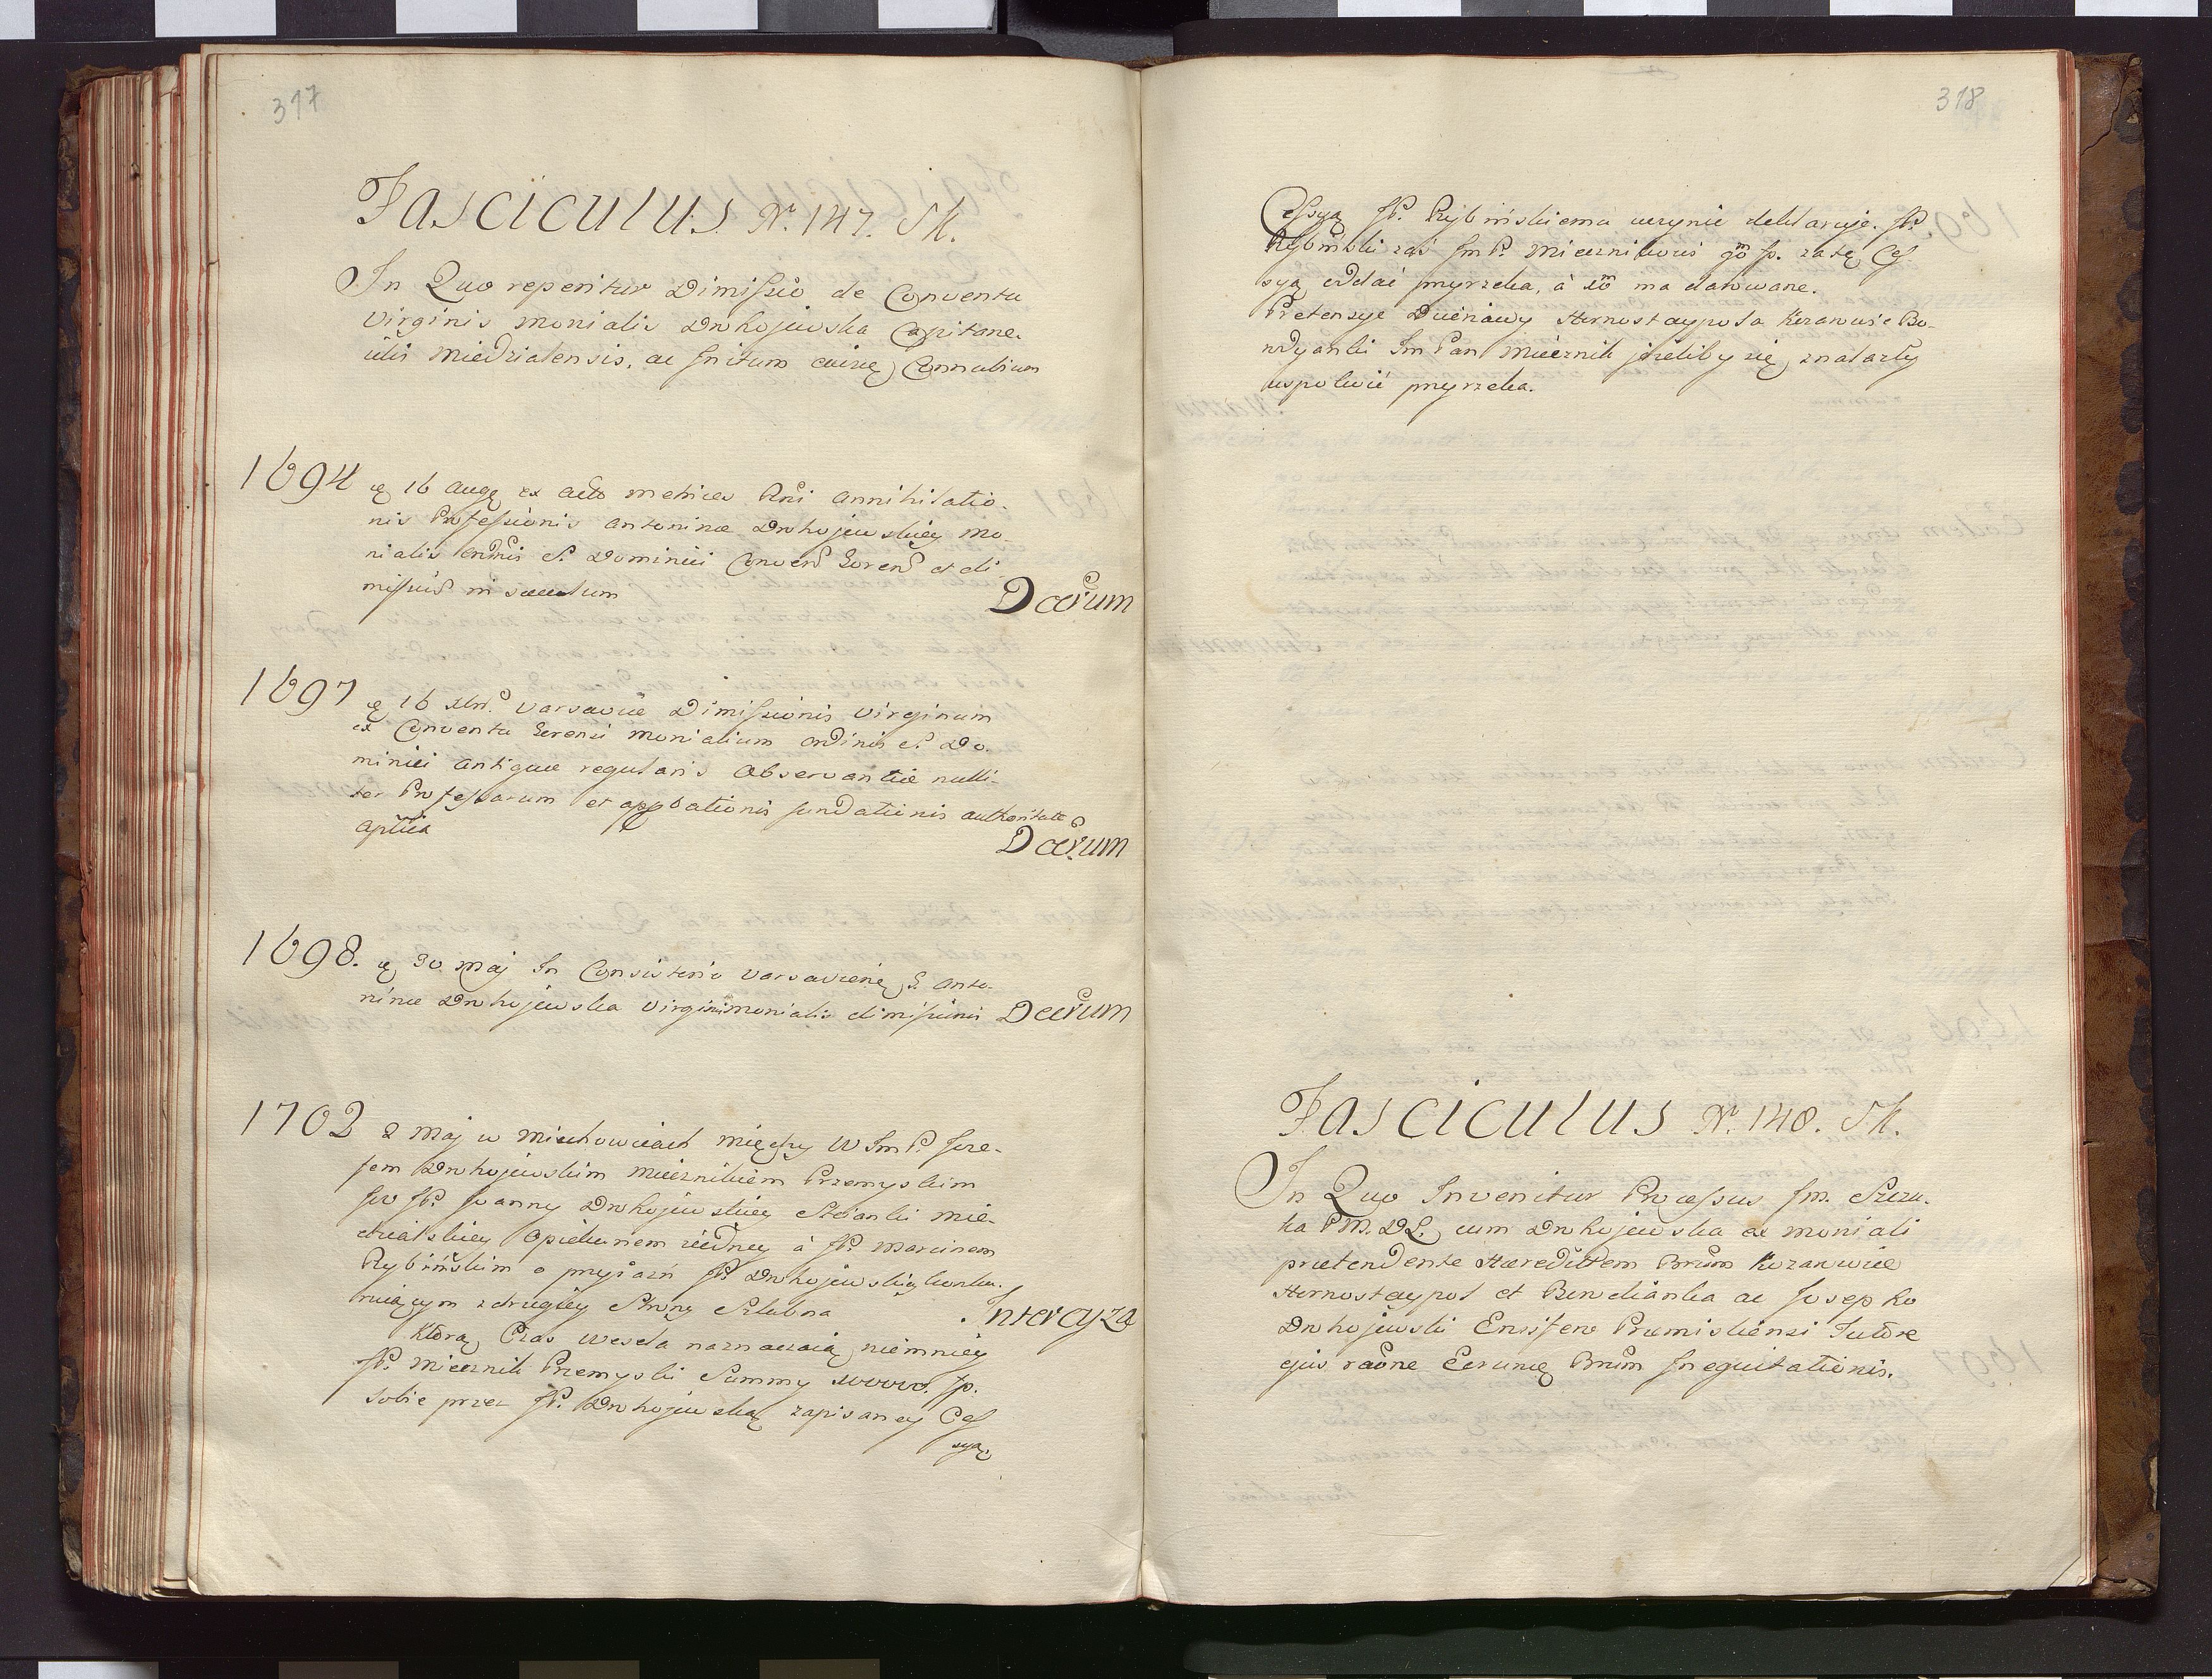 317
Fasciculus Nr. 147. Sk.
In Quo reperitur Dimissio de Conventu
Virginis monialis Drohojewska Capitane-
idis Miedzialensis, ac Initum cuius Connubium
1694 16 Aug ex acto metrices annihilatio-
nis Professionis Antoninæ Drohojewskiey mo-
nialis S. Dominici et di-
in sæculum
Decrum
1697 16 Varsaviæ Dimissionis Virginum
ex Conventu monialium ordinis S. Do-
minici antiquæ regularis observantiæ nulli-
ter Professarum et appbationis fundationis authoritate
aptica
Decrum
1698. 30 Maj In Consistorio Varsavien G. Anto-
ninæ Drohojewska Virginis monialis dimissionis Decrum
1702 2 Maj w Miechowicach między W Jm P. Joze-
fem Drohojewskim Miecznikiem Przemyskim
JP. Joanny Drohojewskiey Ścianki Mie-
dzialskiey Opiekunem ziedney à JP. Marcinem
Rybińskim o przyiazń JP. Drohojewskią konku-
ruiącym zdrugiey Strony Slubna
Intercyza
Którą Czas Wesela naznaczaią niemniey
JP. Miecznik Przemyski Summy 10000. fp.
Sobie przez JP. Drohojewską zapisaney Ces
syą
318
Cessyą JP. Rybińskiemu uczynić deklaruje. JP.
Rybiński zaś Jm P. Miecznikowi fp. zatę Ces
syą oddać przyrzeka, à ma darowane.
Pretensye Hornostaypola Kozarowic Bo-
rodyanki Jm Pan Miecznik jeżeliby się znalazły
uspokoić przyrzeka.
Fasciculus Nr. 148. Sk.
In Quo Invenitur Processus Jm. Szczu-
ka PM. DL. cum Drohojewska ex moniali
prætendente Hæreditatem Bnum Kozarowice
Hornostaypol et Borodianka ac Josepho
Drohojewski Ensifero Præmisliensi Tutore
ejus raone Eorum Bnum Inequitationis.